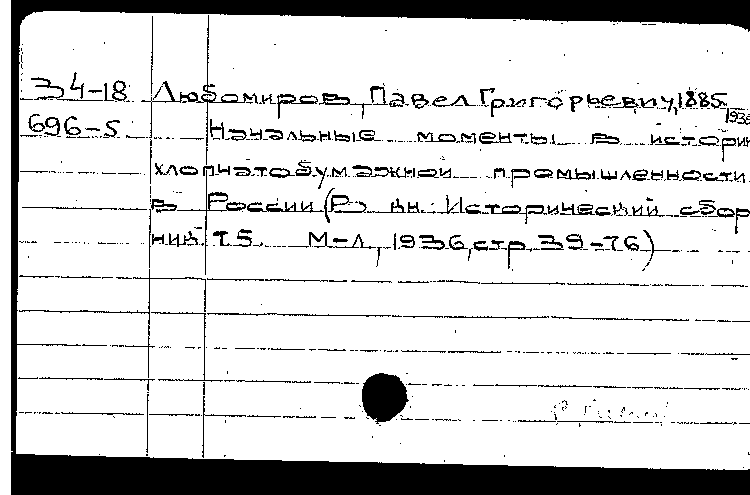 34-18 Любомиров, Павел Григорьевич, 1885-1935
696-5 Начальные моменты в истории
хлопчатобумажной промышленности
в России (В кн. Исторический сбор
ник. Т.5. М-Л, 1936, стр. 39-76)